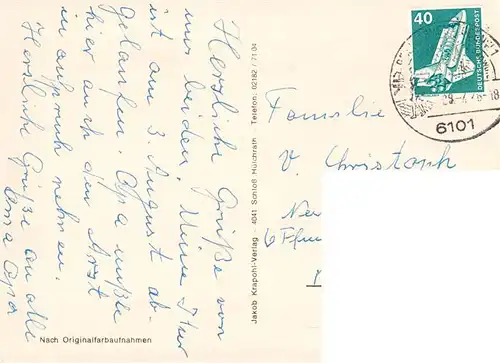 Herzliche Grüße von
uns beiden. Meine Kur
ist am 3. August ab-
gelaufen. Opa mußte
hier auch den Arzt
in anspruch nehmen.
Herzliche Grüße an alle
Oma Opa
Nach Originalfarbaufnahmen
Jakob Krapohl-Verlag - 4041 Schloß Hülchrath Telefon: 02182 / 71 04
40
DEUTSCHE BUNDESPOST
6101
Familie
v. Christoph